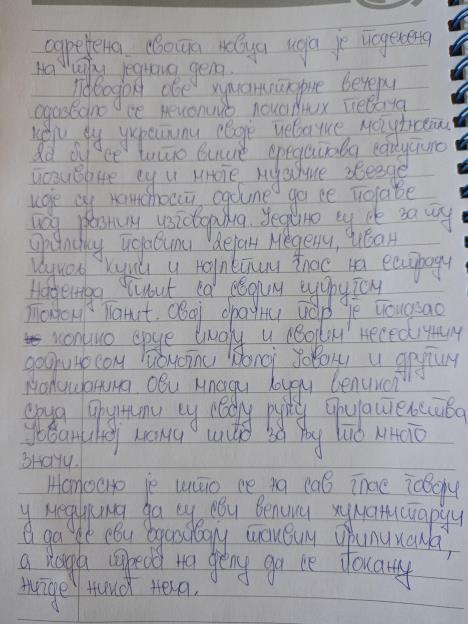 одређена. свота новца која је подељена
на три једнака дела.
Поводом ове хуманитарне вечери
одазвало се неколико локалних певача
који су укрстили своје певачке могућности
да би се што више средстава сакупило
позиване су и многе музичке звезде
које су нажалост одбиле да се појаве
под разним изговорима. Једино су се за ту
прилику појавили Дејан Медени, Иван
Кукољ Куки и најлепши глас на естради
Надежда са својим супругом
Томом Панић. Овај брачни пар је показао
колико срце имају и својим несебичним
доприносом помогли малој Јовани и другим
малишанима. Ови млади људи великог
срца пружили су своју руку пријатељства
Јованиној мами што за њу то много
значи.
Жалосно је што се на сав глас говори
у медијима да су сви велики хуманитарци
и да се сви одазивају таквим приликама,
а када треба на делу да се покажу
нигде никог нема.